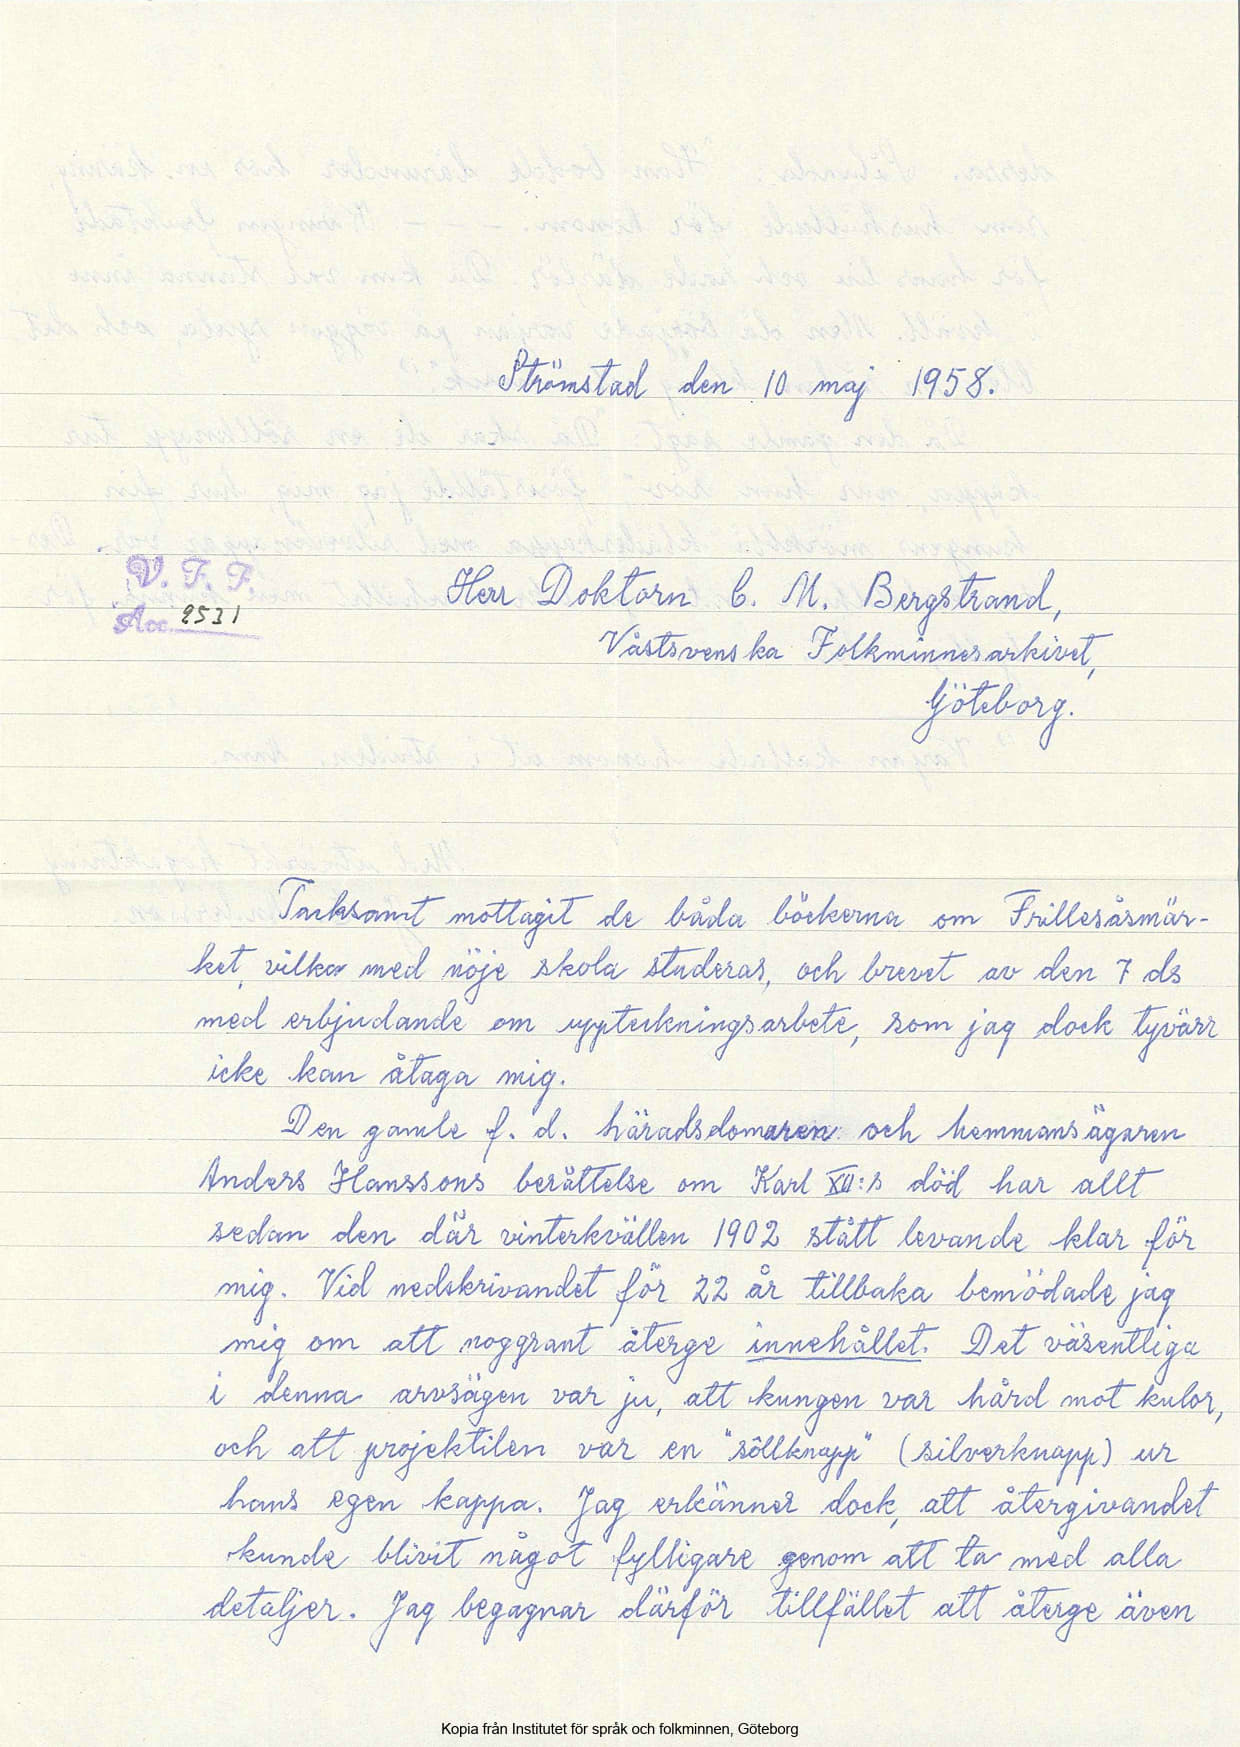 Strömstad den 10 maj 1958.
V. F. F.
Acc. 2531
Herr Doktorn C. M. Bergstrand,
Västsvenska Folkminnesarkivet,
Göteborg.
Tacksamt mottagit de båda böckerna om Frillesåsmär-
ket, vilka med nöje skola studeras, och brevet av den 7 ds
med erbjudande om uppteckningsarbete, som jag dock tyvärr
icke kan åtaga mig.
Den gamle f. d. häradsdomaren och hemmansägaren
Anders Hanssons berättelse om Karl XII:s död har allt
sedan den där vinterkvällen 1902 stått levande klar för
mig. Vid nedskrivandet för 22 år tillbaka bemödade jag
mig om att noggrant återge innehållet. Det väsentliga
i denna arvsägen var ju, att kungen var hård mot kulor,
och att projektilen var en "söllknapp" (silverknapp) ur
hans egen kappa. Jag erkänner dock, att återgivandet
kunde blivit något fylligare genom att ta med alla
detaljer. Jag begagnar därför tillfället att återge även
Kopia från Institutet för språk och folkminnen, Göteborg